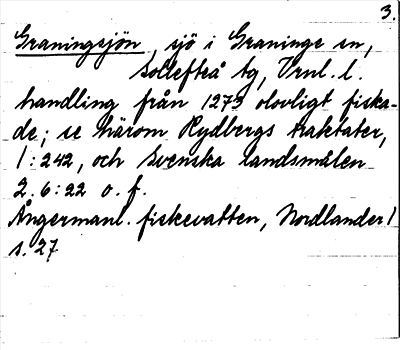 3.
Graningsjön, sjö i Graninge sn,
Sollefteå tg, Vrnl. l.
handling från 1273 olovligt fiska-
de; se härom Rydbergs traktater,
1:242, och Svenska landsmålen
2.6:22 o. f.
Ångermanl. fiskevatten, Nordlander 1
s. 27